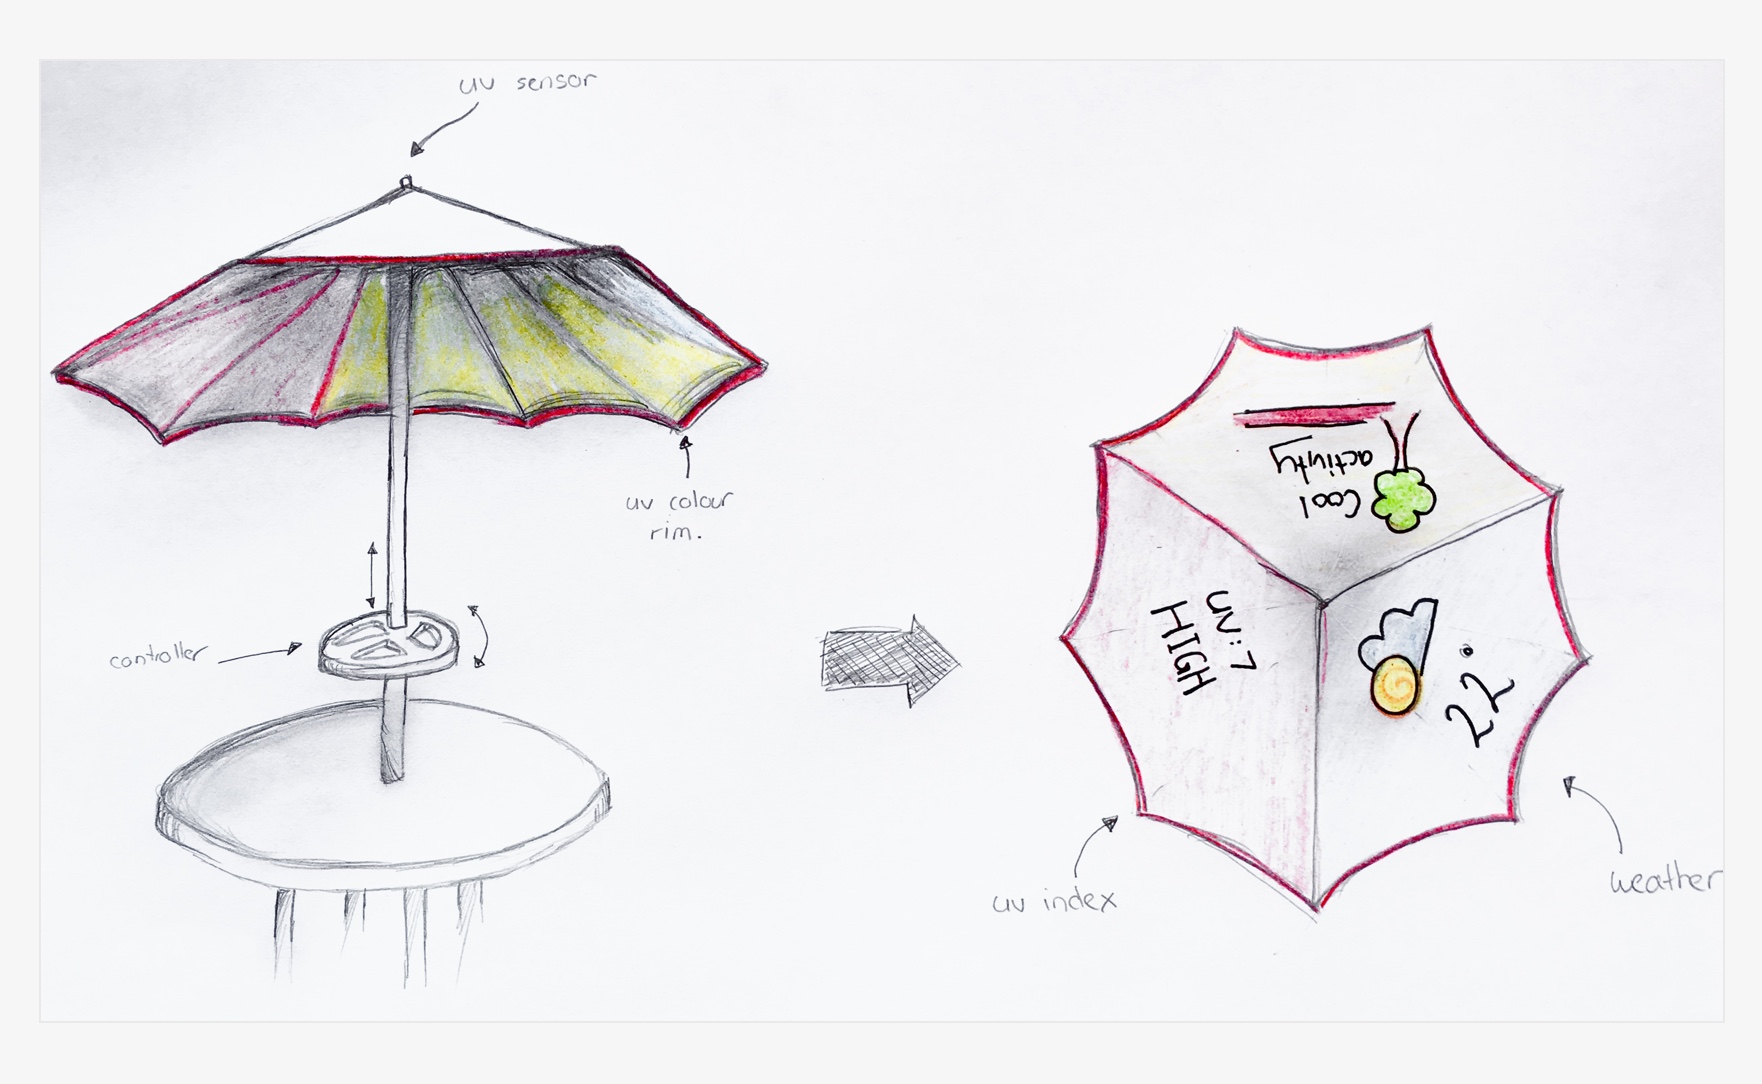 uv sensor
uv colour
rim.
controller
Cool
activity
uv: 7
HIGH
22°
uv index
weather